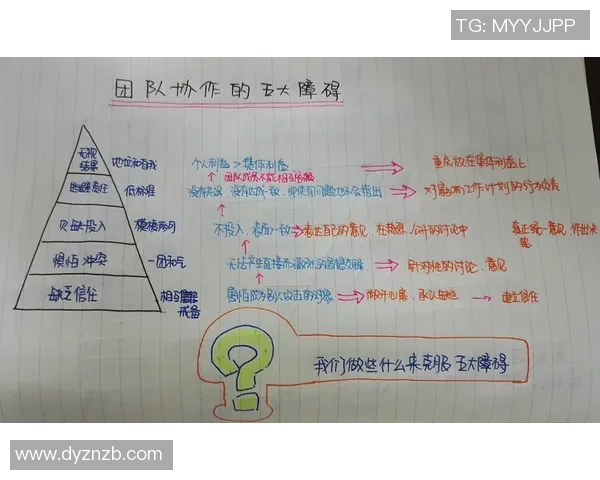 TG: MYYJJPP
团队协作的五大障碍
无视结果 地位和自我 个人利益>集体利益 重点放在集体利益上
团队成员不能相互
逃避责任 低标准 没有共识,没有达成一致,即使有问题也不会指出 对影响工作计划的行为负责
欠缺投入 模棱两可 不投入,表面一致 表达自己的意见,在热烈、公开的讨论中 真正统一意见,作出决策
惧怕冲突 一团和气 无法产生直接而激烈的思想交锋 针对性的讨论、意见
缺乏信任 相互戒备 害怕成为别人攻击的对象 敞开心扉,承认缺点 建立信任
我们做些什么来克服五大障碍
www.dyznzb.com